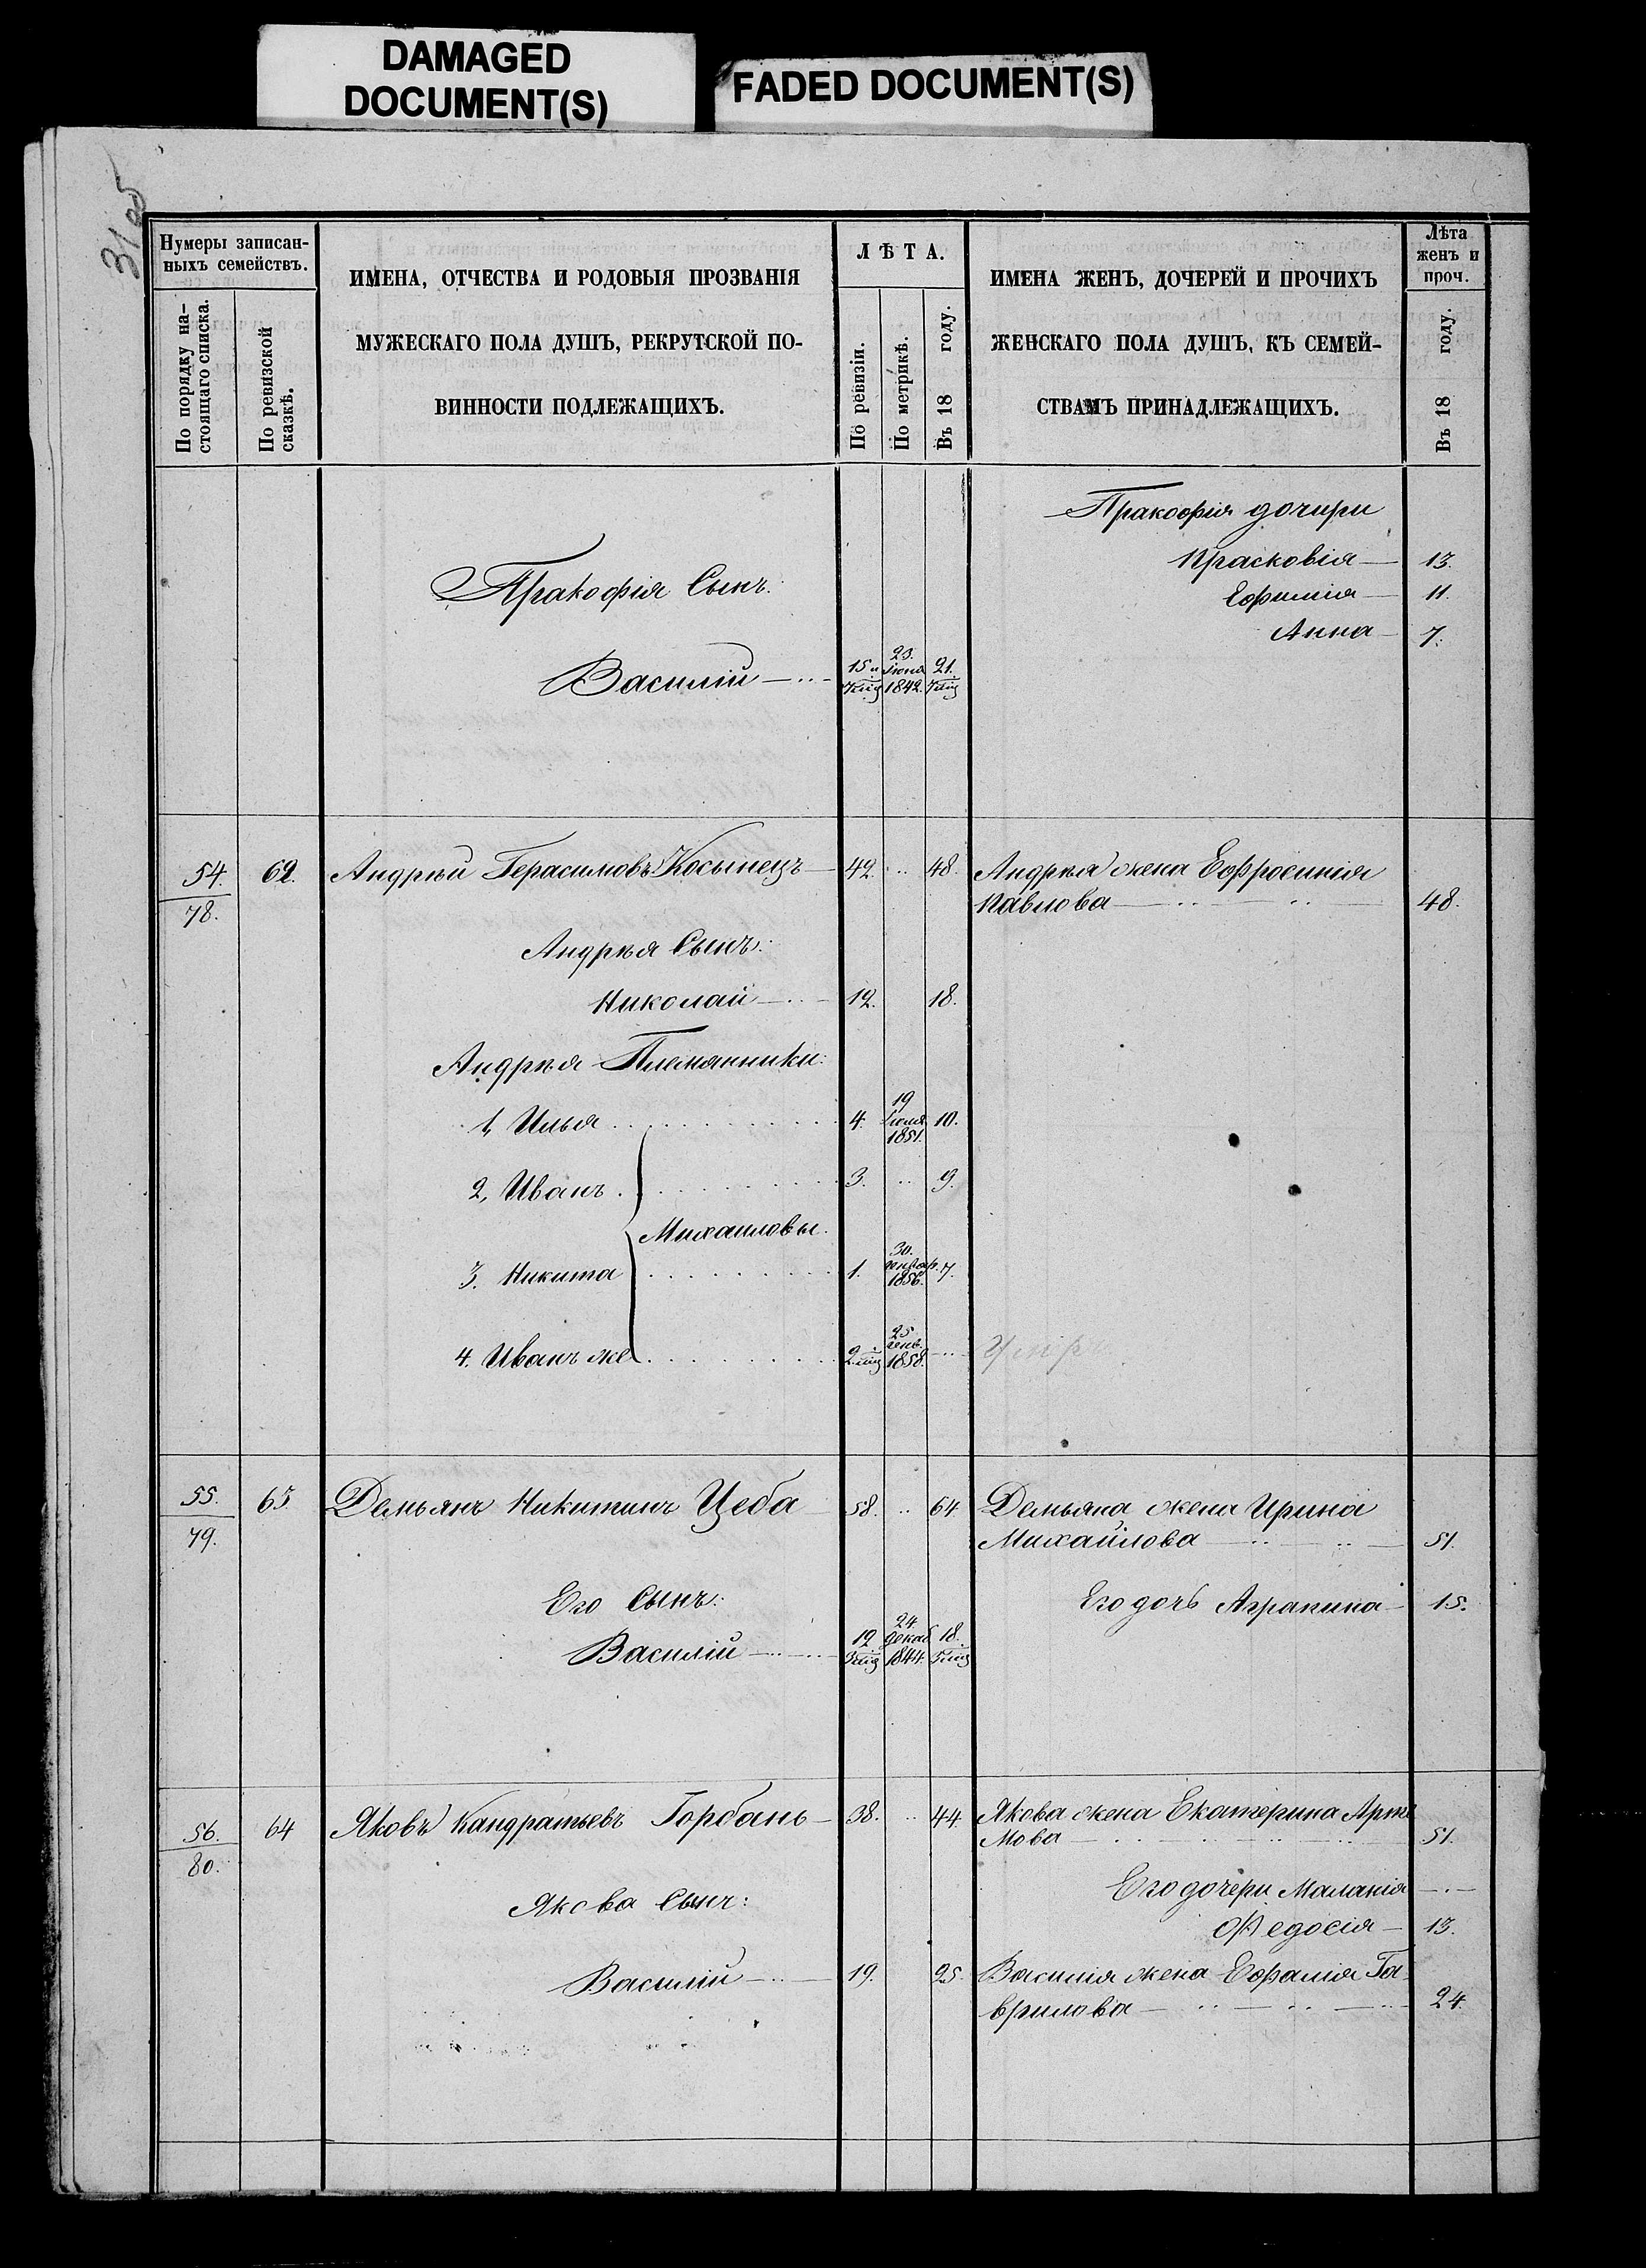 DAMAGED
DOCUMENT(S)
FADED DOCUMENT(S)
Нумеры записан-
ныхъ семействъ.
По порядку на-
стоящаго списка.
По ревизской
сказкѣ.
ИМЕНА, ОТЧЕСТВА И РОДОВЫЯ ПРОЗВАНІЯ
МУЖЕСКАГО ПОЛА ДУШЪ, РЕКРУТСКОЙ ПО-
ВИННОСТИ ПОДЛЕЖАЩИХЪ.
ЛѢТА.
По ревизіи.
По метрикѣ.
Въ 18 году.
ИМЕНА ЖЕНЪ, ДОЧЕРЕЙ И ПРОЧИХЪ
ЖЕНСКАГО ПОЛА ДУШЪ, КЪ СЕМЕЙ-
СТВАМЪ ПРИНАДЛЕЖАЩИХЪ.
Лѣта
женъ и
проч.
Въ 18 году.
Пракофія дочири
Прасковія — 13.
Ефимія — 11.
Анна — 7.
Пракофія Сынъ:
Василій 15 23. 1842. 21.
54. 78. 62. Андрѣй Герасимовъ Косынецъ — 42. 48. Андрѣя жена Ефросинія
Павлова — 48.
Андрѣя Сынъ:
Николай — 12. 18.
Андрѣя Племянники:
1, Илья 4. 19 Іюля 1851. 10.
2, Иванъ 3. 9.
Михаиловы
3. Никита 1. 30. 1856. 7.
4. Иванъ же 25 генв. 1858.
55. 79. 63 Демьянъ Никитинъ Цеба 58. 64 Демьяна жена Ирина
Михайлова — 51.
Его Сынъ: Его дочь Аграпина — 15.
Василій 12 24 декаб 1844. 18
56. 80. 64 Яковъ Кандратьевъ Горбань — 38. 44 Якова жена Екатерина Арте
мова — 51.
Его дочери Маланія
Якова Сынъ:
Федосія — 13.
Василій 19. 25. Василія жена Ефимія Га-
врилова — 24.